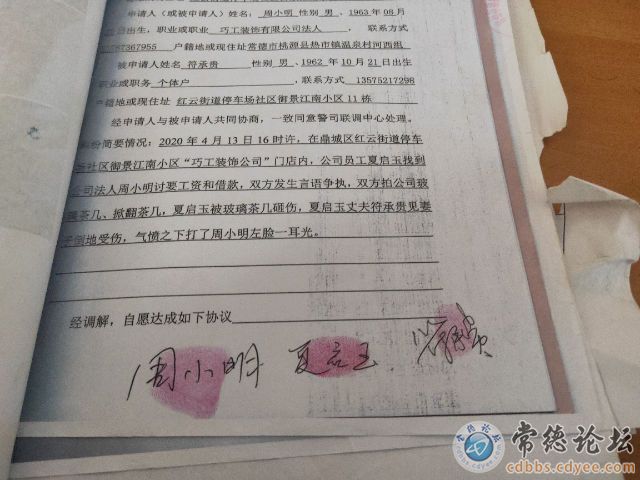 申请人（或被申请人）姓名：周小明 性别 男、1963 年 08 月
日出生，职业或职业 巧工装饰有限公司法人 ， 联系方式
87367955 户籍地或现住址 常德市桃源县热市镇温泉村河西组
被申请人姓名 符承贵 性别 男、1962 年 10 月 21 日出生
职业或职务 个体户 ，联系方式 13575217298
户籍地或现住址 红云街道停车场社区御景江南小区 11 栋
经申请人与被申请人共同协商，一致同意警司联调中心处理。
纠纷简要情况：2020 年 4 月 13 日 16 时许，在鼎城区红云街道停车
场社区御景江南小区“巧工装饰公司”门店内，公司员工夏启玉找到
公司法人周小明讨要工资和借款，双方发生言语争执，双方拍公司玻
璃茶几、掀翻茶几，夏启玉被玻璃茶几砸伤，夏启玉丈夫符承贵见妻
子倒地受伤，气愤之下打了周小明左脸一耳光。
经调解，自愿达成如下协议
周小明 夏启玉 符承贵
常德论坛
cdbbs.cdyee.com